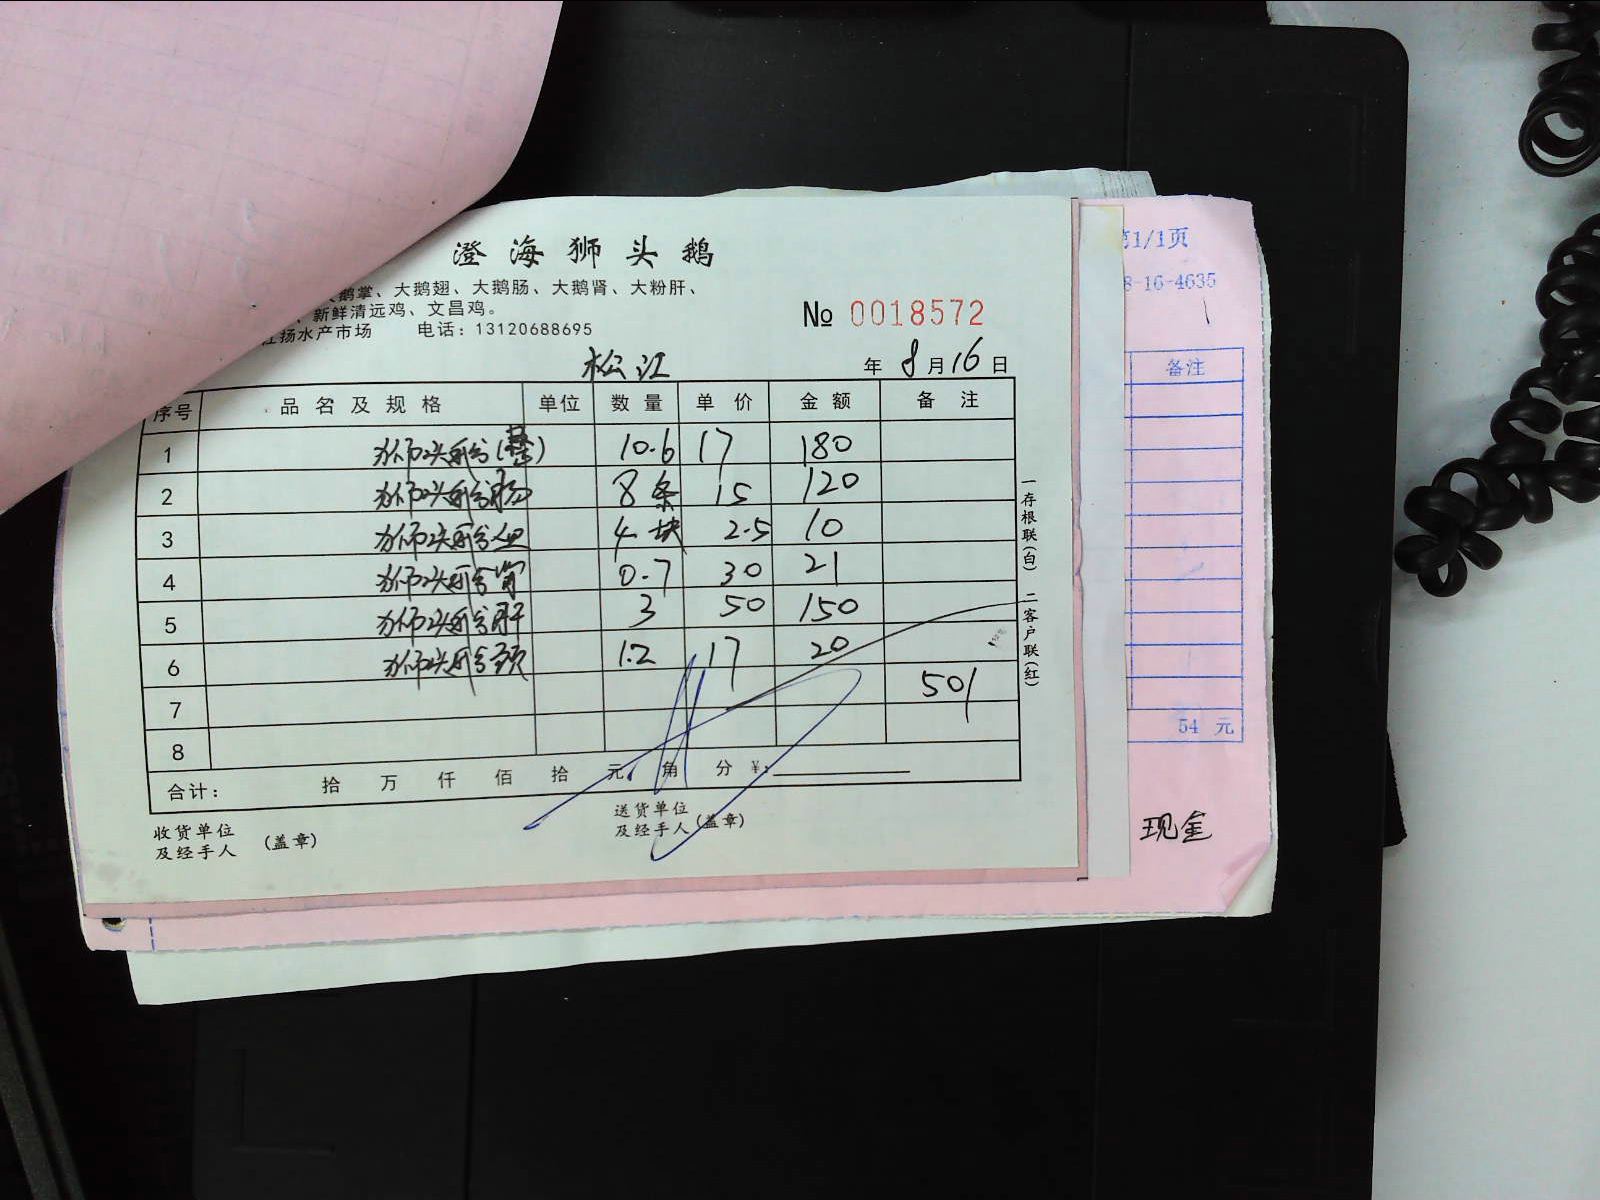 澄海狮头鹅
鹅掌、大鹅翅、大鹅肠、大鹅肾、大粉肝、
新鲜清远鸡、文昌鸡。
江扬水产市场 电话：13120688695
№ 0018572
松江 年 8 月 16 日
序号 品名及规格 单位 数量 单价 金额 备注
1 狮头鹅(整) 10.6 17 180
2 狮头鹅肠 8条 15 120
3 狮头鹅血 4块 2.5 10
4 狮头鹅肾 0.7 30 21
5 狮头鹅肝 3 50 150
6 狮头鹅头 1.2 17 20
7 501
8
合计： 拾 万 仟 佰 拾 元 角 分 ¥：
收货单位
及经手人 (盖章)
送货单位
及经手人 (盖章)
一存根联(白) 二客户联(红)
第1/1页
8-16-4635
备注
54 元
现金